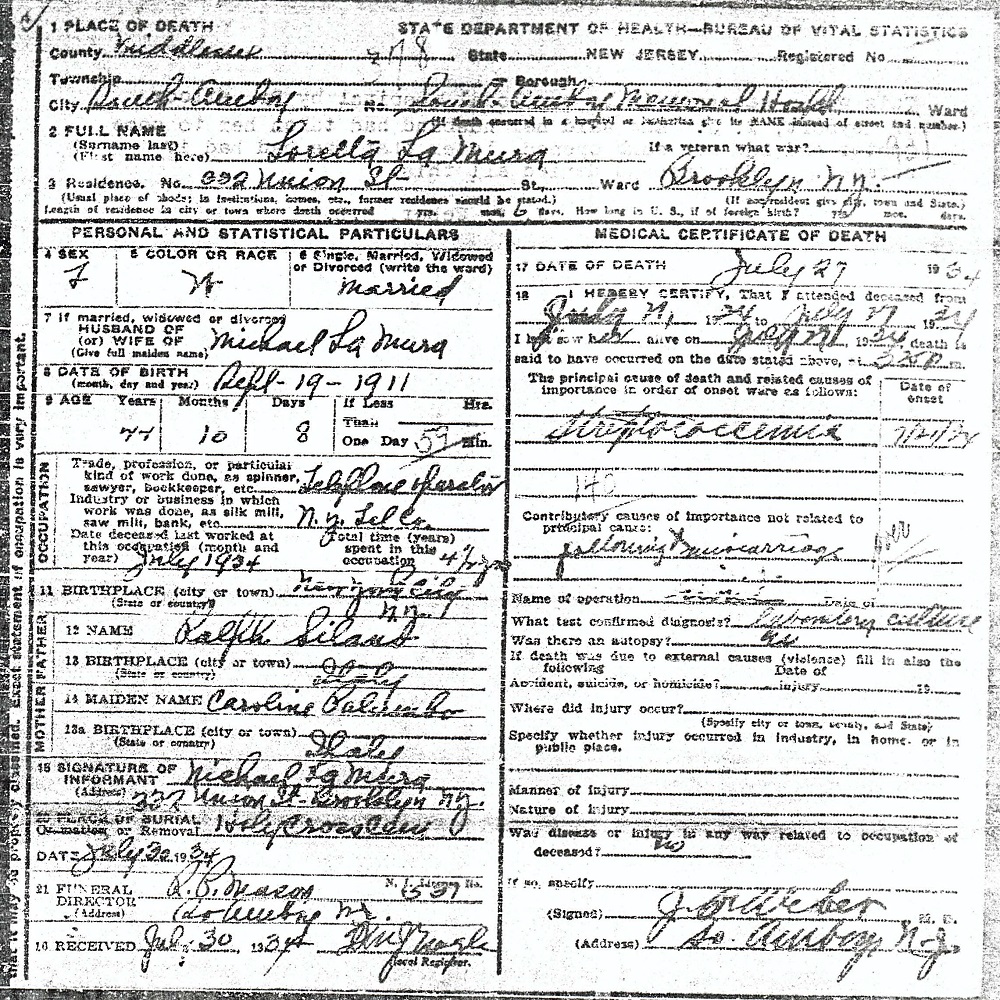 1 PLACE OF DEATH
STATE DEPARTMENT OF HEALTH—BUREAU OF VITAL STATISTICS
County Middlesex State NEW JERSEY Registered No.
Township Borough
City South Amboy No. South Amboy Memorial Hospital Ward
(If death occurred in a hospital or institution give its NAME instead of street and number.)
2 FULL NAME
(Surname last)
(First name here) Loretta La Mura If a veteran what war?
3 Residence. No. 332 Union St St., Ward Brooklyn N.Y.
(Usual place of abode; in institutions, homes, etc., former residence should be stated.) (If nonresident give city, town and State.)
Length of residence in city or town where death occurred yrs. mos. 6 days. How long in U. S., if of foreign birth? yrs. mos. days.
PERSONAL AND STATISTICAL PARTICULARS
4 SEX
F
5 COLOR OR RACE
W
6 Single, Married, Widowed
or Divorced (write the word)
Married
7 If married, widowed or divorced
HUSBAND OF
(or) WIFE OF
(Give full maiden name)
Michael La Mura
8 DATE OF BIRTH
(month, day and year) Sept-19-1911
9 AGE Years Months Days If Less Than One Day Hrs. Min.
10 8
OCCUPATION
Trade, profession, or particular
kind of work done, as spinner,
sawyer, bookkeeper, etc. Telephone Operator
Industry or business in which
work was done, as silk mill,
saw mill, bank, etc. N.Y. Tel Co.
Date deceased last worked at
this occupation (month and
year) July 1934
Total time (years)
spent in this
occupation 4½ yrs
11 BIRTHPLACE (city or town) New York City
(State or country) N.Y.
FATHER
12 NAME Ralph Silano
13 BIRTHPLACE (city or town)
(State or country) Italy
MOTHER
14 MAIDEN NAME Caroline Palumbo
13a BIRTHPLACE (city or town)
(State or country) Italy
15 SIGNATURE OF
INFORMANT Michael La Mura
(Address) 332 Union St-Brooklyn N.Y.
PLACE OF BURIAL
Cremation or Removal Holy Cross Cem
DATE July 30 1934
21 FUNERAL
DIRECTOR
(Address)
N. J. License No. 1537
So Amboy N.J.
16 RECEIVED July 30 1934
Local Registrar.
MEDICAL CERTIFICATE OF DEATH
17 DATE OF DEATH July 27 1934
18 I HEREBY CERTIFY, That I attended deceased from
July 21, 1934 to July 27 1934
I last saw her alive on July 27 1934 death is
said to have occurred on the date stated above, at m.
The principal cause of death and related causes of
importance in order of onset were as follows:
Date of
onset
Streptococcemia
140
Contributory causes of importance not related to
principal cause:
following miscarriage
Name of operation Date of
What test confirmed diagnosis? laboratory culture
Was there an autopsy? no
If death was due to external causes (violence) fill in also the
following
Accident, suicide, or homicide? Date of injury 19
Where did injury occur?
(Specify city or town, county, and State)
Specify whether injury occurred in industry, in home, or in
public place.
Manner of injury
Nature of injury
Was disease or injury in any way related to occupation of
deceased? no
If so, specify
(Signed) J. W. Weber M. D.
(Address) So. Amboy, N-J.
classified. Exact statement of occupation is very important.